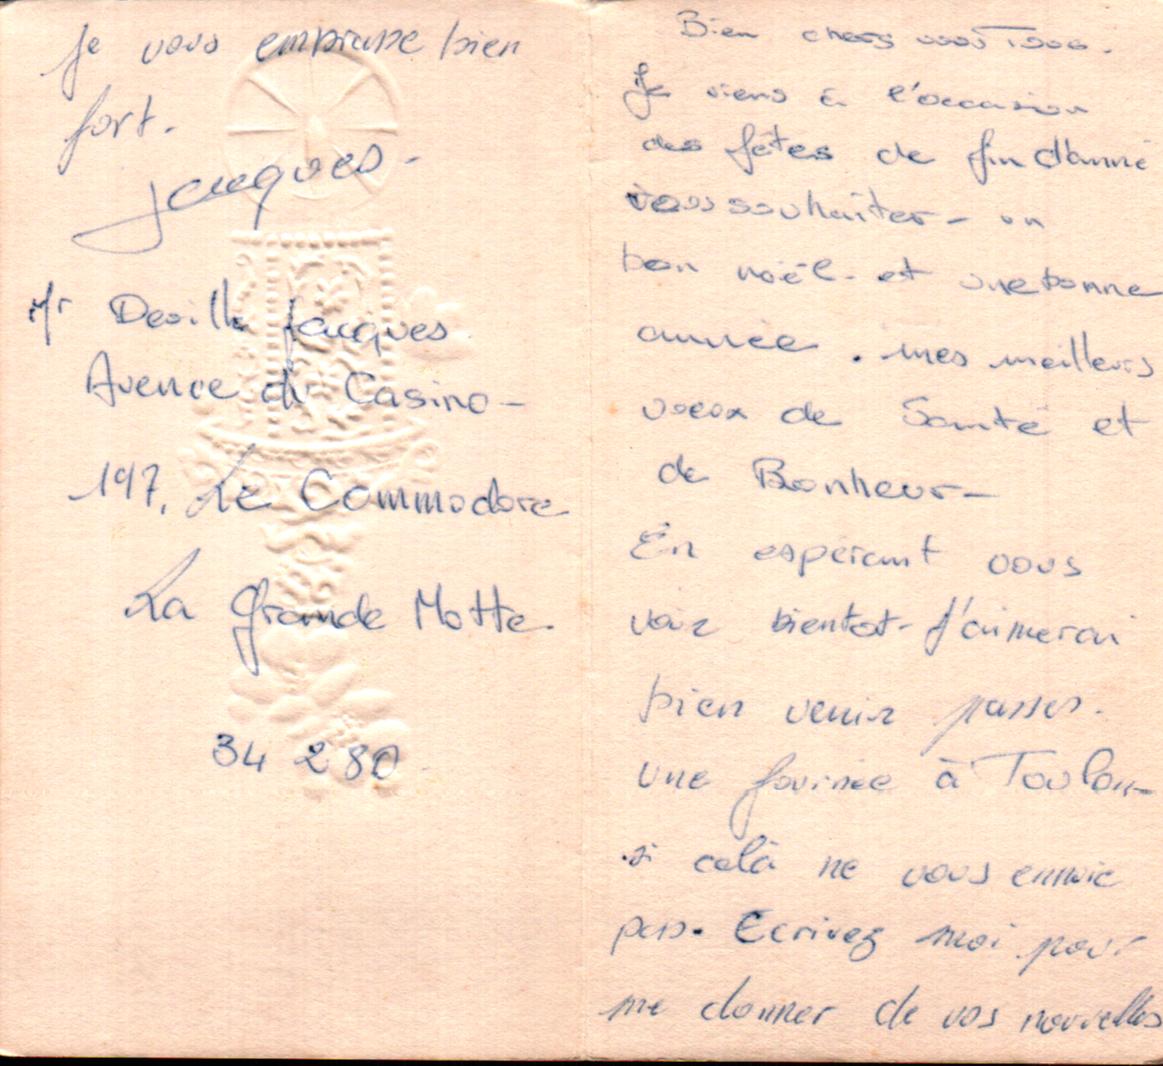 Bien chers vous Tous.
Je viens à l'occasion
des fêtes de fin d'anné
vous souhaiter - un
bon noël - et une bonne
année. mes meilleurs
voeux de Santé et
de Bonheur -
En espérant vous
voir bientot - J'aimerai
bien venir passer.
une journée à Toulon -
si celà ne vous ennuie
pas. Ecrivez moi pour
me donner de vos nouvelles
Je vous embrasse bien
fort.
Jacques -
Mr Deville Jacques
Avenue du Casino -
197, Le Commodore
La Grande Motte.
34 280 -